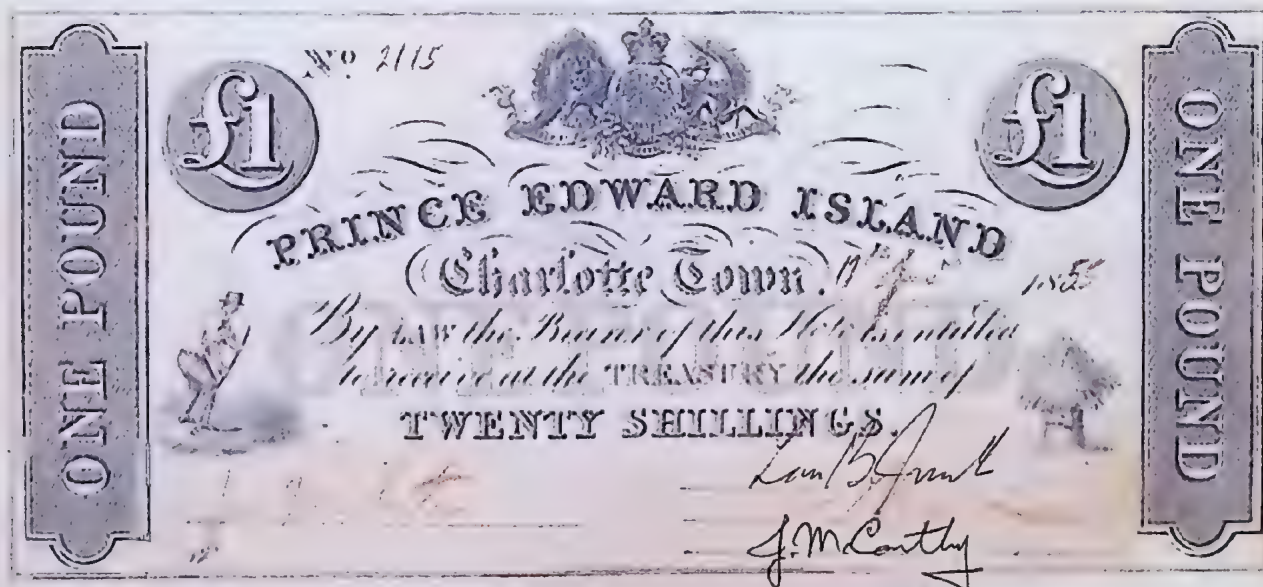 ONE POUND
No 2115
£1
£1
PRINCE EDWARD ISLAND
Charlotte Town. 1855
By LAW the Bearer of this Note is entitled
to receive at the TREASURY the sum of
TWENTY SHILLINGS.
J. McCarthy
ONE POUND